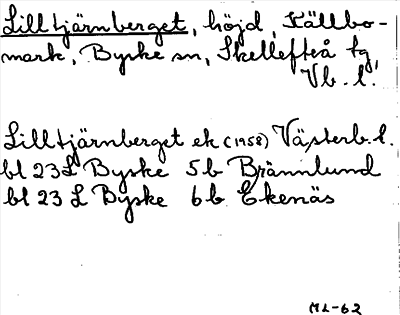 Lilltjärnberget, höjd, Källbo-
mark, Byske sn, Skellefteå tg,
Vb. l.
Lilltjärnberget ek (1958) Västerb. l.
bl 23 L Byske 5b Brännlund
bl 23 L Byske 6b Ekenäs
ML-62